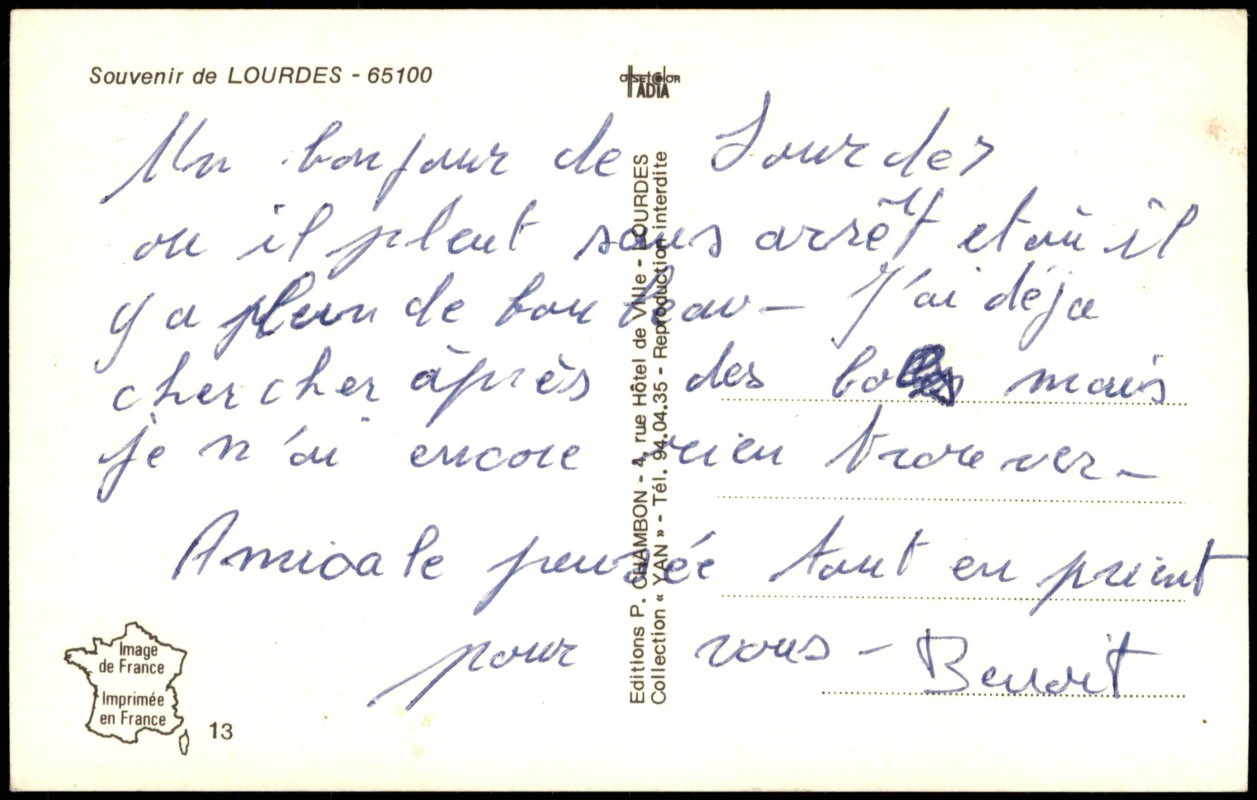 Souvenir de LOURDES - 65100
OFFSET COLOR
TADIA
Un bonjour de Lourdes
ou il pleut sans arrêt et où il
y a plein de boue – J'ai déja
chercher après des mais
je n'ai encore rien trouver –
Amicale pensée tout en prient
pour vous – Benoit
Editions P. CHAMBON - 4, rue Hôtel de Ville - LOURDES
Collection « YAN » - Tél. 94.04.35 - Reproduction interdite
Image
de France
Imprimée
en France
13